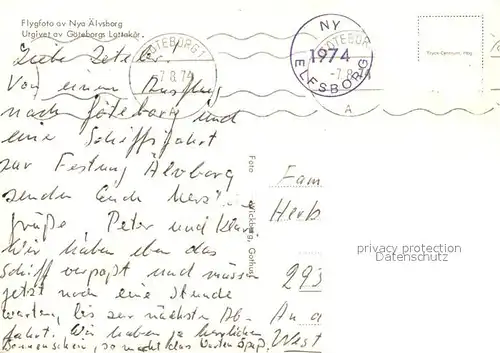 Flygfoto av Nya Älvsborg
Utgivet av Göteborgs Lottakår.
GÖTEBORG 1
-7.8.74
NY
1974
ELFSBORG
GÖTEBORG
-7.8.74
A
Tryck-Centrum, Hbg
Liebe
Von einem Ausflug
nach Göteborg und
eine Schiffsfahrt
zur Festung Älvborg
senden Euch herzl.
Grüße, Peter und Klaus
Wir haben eben das
Schiff verpaßt und müssen
jetzt noch eine Stunde
warten, bis zur nächsten Ab-
fahrt. Wir haben ja herrlichen
Sonnenschein, so macht das Warten Spaß.
Foto Wickberg, Gothus
Fam
Herb
293
An d
West
privacy protection
Datenschutz